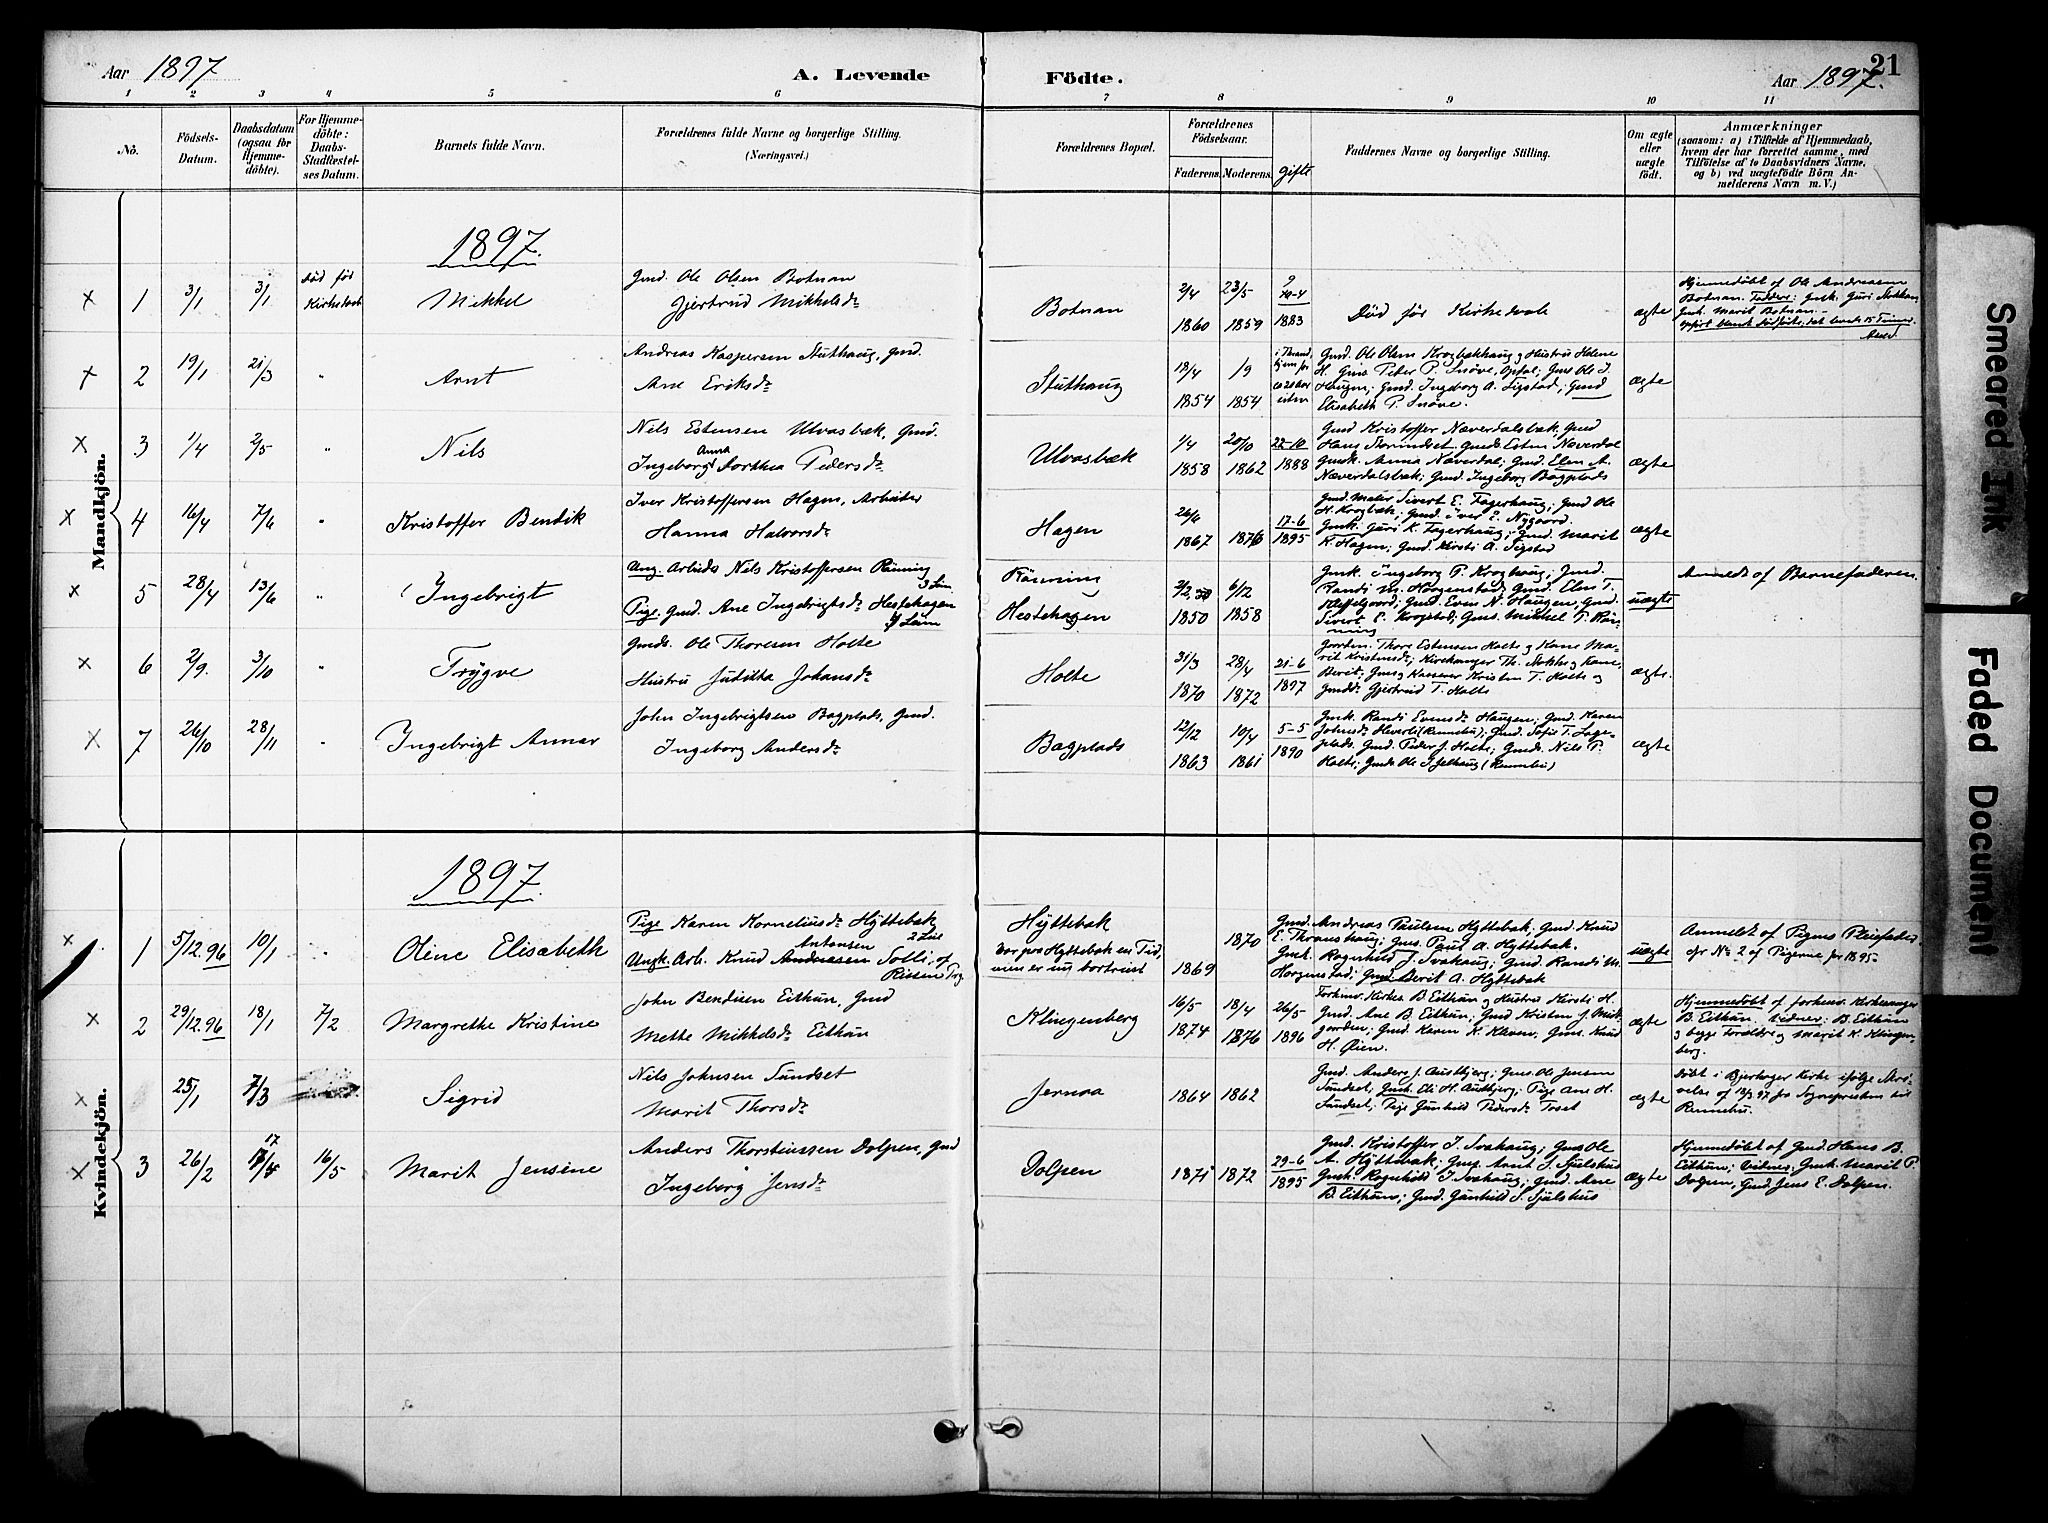 Aar 1897
A. Levende
Födte.
Aar 1897.
21
1 2 3 4 5 6 7 8 9 10 11
Nô.
Födsels-
Datum.
Daabsdatum
(ogsaa for
Hjemme-
döbte).
For Hjemme-
döbte:
Daabs-
Stadfæstel-
ses Datum.
Barnets fulde Navn.
Forældrenes fulde Navne og borgerlige Stilling.
(Næringsvei.)
Forældrenes Bopæl.
Forældrenes
Födselsaar.
Faderens. Moderens.
Gifte
Faddernes Navne og borgerlige Stilling.
Om ægte
eller
uægte
födt.
Anmærkninger
(saasom: a) i Tilfælde af Hjemmedaab,
hvem der har forrettet samme, med
Tilföielse af to Daabsvidners Navne,
og b) ved uægtefödte Börn An-
melderens Navn m. V.)
Mandkjön.
1897.
1 3/1 3/1 Död før
Kirkedaab
Mikkel
Gmd. Ole Olsen Botnan
Gjertrud Mikkelsdr
Botnan
2/4 1860
23/5 1859
1883
Död før Kirkedaab
ægte
Hjemmedöbt af Ole Andreasen
Botnan. Faddere: Gmk. Guri Stokkan
Gmk. Marit Botnan.
2 19/1 21/3 "
Arnt
Andreas Kaspersen Stuthaug, Gmd.
Ane Eriksdr
Stuthaug
18/4 1854
1/9 1854
Gmd. Ole Olsen Krogbækhaug og Hustru Helene
H. Gms Peter P. Snöve, Opdal; Gms Ole I.
Haugen; Gmd. Ingeborg A. Sigstad; Gmd
Elisabeth P. Snöve.
ægte
3 1/4 2/5 "
Nils
Nils Estensen Ulvasbæk, Gmd.
Ingeborg Anna Dorthea Pedersdr
Ulvasbæk
1/4 1858
20/10 1862
22-10 1888
Gmd Kristoffer Næverdalsbæk, Gmd
Hans Stormdset, Gmds. Esten Næverdal
Gmdk. Anna Næverdal; Gmd. Elen A.
Næverdalsbæk; Gmd. Ingeborg Bagplads
ægte
4 16/4 7/6 "
Kristoffer Bendik
Iver Kristoffersen Hagen, Arbeider
Hanna Halvorsdr
Hagen
26/6 1867
1876
17-6 1895
Gmd. Maler Sivert E. Fagerhaug; Gmd Ole
H. Krogbæk; Gmd. Iver E. Nygaard.
Gmk. Guri K. Fagerhaug; Gmd. Marit
K. Hagen; Gmd. Kirsti A. Sigstad
ægte
5 28/4 13/6 "
Ingebrigt
Ung. Arbeider Nils Kristoffersen Rönning
Pige, Gmd. Ane Ingebrigtsdr Hestehagen
Rönning
Hestehagen
1850
6/12 1858
Gmk. Ingeborg P. Kroghaug; Gmd.
Randi M. Horgenstad; Gmd. Elen T.
Kleffelgaard; Gmd. Even N. Haugen, Gmd.
Sivert E. Krogstad; Gms. Mikkel T. Rön-
ning
uægte
Anmeldt af Barnefaderen.
6 2/9. 3/10 "
Trygve
Gmds. Ole Thoresen Holte
Hustru Juditha Johansdr
Holte
31/3 1870
28/4 1872
21-6 1897
Gaardm. Thore Estensen Holte og Kone Ma-
rit Kristensdr; Kirkesanger Th. Stokke og Kone
Berit; Gms og Kasserer Kristen T. Holte og
Gmdd. Gjertrud T. Holte
ægte.
7 26/10 28/11 "
Ingebrigt Annar
John Ingebrigtsen Bagplads, Gmd.
Ingeborg Andersdr
Bagplads
12/12 1863
10/4 1861
5-5 1890
Gmk. Randi Evensdr Haugen; Gmd. Karen
Johnsdr Heverli (Rennebu); Gmd. Sofie T. Lage-
plads. Gmd. Peder J. Holte; Gmds. Nils P.
Holte; Gmds Ole I. Jelhaug (Rennebu)
ægte
Kvindekjön.
1897.
1 5/12.96 10/1
Oline Elisabeth
Pige Karen Korneliusdr Hyttebak
Ungk. Arb. Knud Andreasen Antonsen Solli, af
Hyttebak
Var paa Hyttebak en Tid,
men er nu bortreist
1869
1870
Gmd. Andreas Paulsen Hyttebak, Gmd. Knud
E. Thranshaug; Gms. Paul A. Hyttebak.
Gmk. Ragnhild J. Svahaug; Gmd. Randi M.
Horgenstad; Gmd Berit A. Hyttebak
uægte
Anmeldt af Pigens Pleiefader
cfr No 2 af Pigerne for 1895
2 29/12.96 18/1 7/2
Margrethe Kristine
John Bendixen Eithun, Gmd
Mette Mikkelsdr Eithun
Klingenberg
16/5 1874
18/4 1876
26/5 1896
Forhenv. Kirkes. B. Eithun og Hustru Kirsti H.
Gmd. Ane B. Eithun; Gmd Kristen J. Mid-
gaarden; Gmd. Karen K. Kleven, Gms. Knud
H. Øien.
ægte
Hjemmedöbt af forhenv. Kirkesanger
B. Eithun, vidner: B. Eithun
og begge Forældre og Marit K. Klingen-
berg.
25/1 7/3
Sigrid
Nils Johnsen Sundset
Marit Thorsdr
Jernaa
1864
1862
Gmd. Anders J. Austbjerg; Gms. Ole Jensen
Sundset; Gmk. Eli H. Austbjerg; Pige Ane H.
Sundset; Pige Gunhild Pedersdr Toset
ægte
döbt i Bjerkager Kirke ifölge Skri-
velse af 12/3 97 fra Sognepresten til
Rennebu.
3 26/2 17/4 16/5
Marit Jensine
Anders Thorsteinssen Dolpen, Gmd
Ingeborg Jensdr
Dolpen
1871
1872
29-6 1895
Gmd. Kristoffer J. Svahaug; Gms Ole
A. Hyttebak; Gms. Arnt S. Sjulshus
Gmk. Ragnhild J. Svahaug; Gmd. Ane
B. Eithun; Gmd. Gunhild S. Sjulshus
ægte
Hjemmedöbt af Gmd. Hans B.
Eithun; vidner, Gmk. Marit P.
Dolpen, Gmd. Jens E. Dolpen.
Smeared Ink
Faded Document